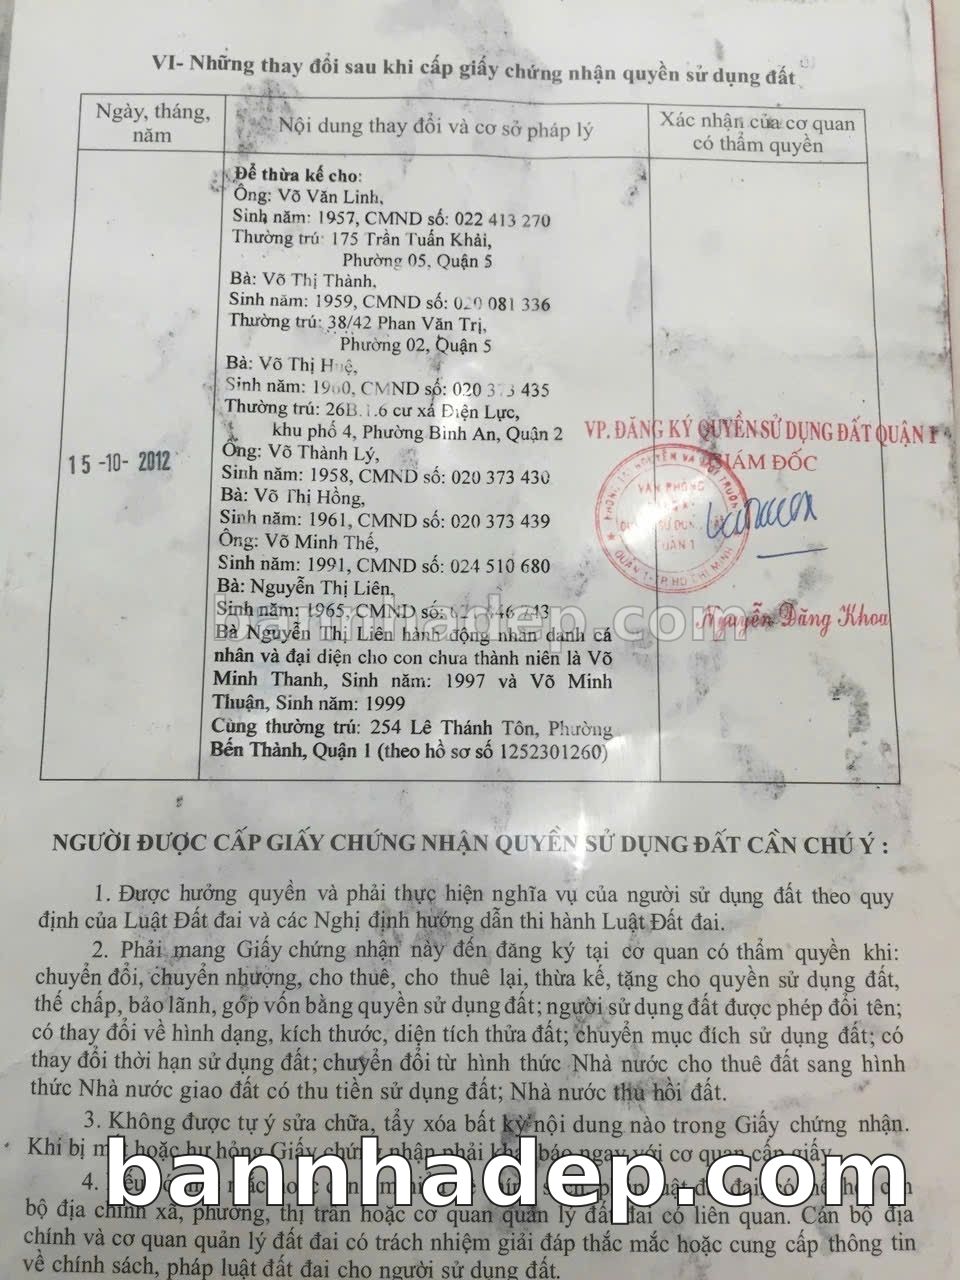 VI- Những thay đổi sau khi cấp giấy chứng nhận quyền sử dụng đất
Ngày, tháng, năm
Nội dung thay đổi và cơ sở pháp lý
Xác nhận của cơ quan có thẩm quyền
15-10-2012
Để thừa kế cho:
Ông: Võ Văn Linh,
Sinh năm: 1957, CMND số: 022 413 270
Thường trú: 175 Trần Tuấn Khải,
Phường 05, Quận 5
Bà: Võ Thị Thành,
Sinh năm: 1959, CMND số: 020 081 336
Thường trú: 38/42 Phan Văn Trị,
Phường 02, Quận 5
Bà: Võ Thị Huệ,
Sinh năm: 1960, CMND số: 020 373 435
Thường trú: 26B.1.6 cư xá Điện Lực,
khu phố 4, Phường Bình An, Quận 2
Ông: Võ Thành Lý,
Sinh năm: 1958, CMND số: 020 373 430
Bà: Võ Thị Hồng,
Sinh năm: 1961, CMND số: 020 373 439
Ông: Võ Minh Thế,
Sinh năm: 1991, CMND số: 024 510 680
Bà: Nguyễn Thị Liên,
Sinh năm: 1965, CMND số:
Bà Nguyễn Thị Liên hành động nhân danh cá
nhân và đại diện cho con chưa thành niên là Võ
Minh Thanh, Sinh năm: 1997 và Võ Minh
Thuận, Sinh năm: 1999
Cùng thường trú: 254 Lê Thánh Tôn, Phường
Bến Thành, Quận 1 (theo hồ sơ số 1252301260)
VP. ĐĂNG KÝ QUYỀN SỬ DỤNG ĐẤT QUẬN 1
GIÁM ĐỐC
VĂN PHÒNG
QUẬN 1
QUẬN 1-T.P HỒ CHÍ MINH
Nguyễn Đăng Khoa
bannhadep.com
NGƯỜI ĐƯỢC CẤP GIẤY CHỨNG NHẬN QUYỀN SỬ DỤNG ĐẤT CẦN CHÚ Ý :
1. Được hưởng quyền và phải thực hiện nghĩa vụ của người sử dụng đất theo quy
định của Luật Đất đai và các Nghị định hướng dẫn thi hành Luật Đất đai.
2. Phải mang Giấy chứng nhận này đến đăng ký tại cơ quan có thẩm quyền khi:
chuyển đổi, chuyển nhượng, cho thuê, cho thuê lại, thừa kế, tặng cho quyền sử dụng đất,
thế chấp, bảo lãnh, góp vốn bằng quyền sử dụng đất; người sử dụng đất được phép đổi tên;
có thay đổi về hình dạng, kích thước, diện tích thửa đất; chuyển mục đích sử dụng đất; có
thay đổi thời hạn sử dụng đất; chuyển đổi từ hình thức Nhà nước cho thuê đất sang hình
thức Nhà nước giao đất có thu tiền sử dụng đất; Nhà nước thu hồi đất.
3. Không được tự ý sửa chữa, tẩy xóa bất kỳ nội dung nào trong Giấy chứng nhận.
Khi bị mất hoặc hư hỏng Giấy chứng nhận phải khai báo ngay với cơ quan cấp giấy.
bannhadep.com
4.
bộ địa chính xã, phường, thị trấn hoặc cơ quan quản lý đất đai có liên quan. Cán bộ địa
chính và cơ quan quản lý đất đai có trách nhiệm giải đáp thắc mắc hoặc cung cấp thông tin
về chính sách, pháp luật đất đai cho người sử dụng đất.